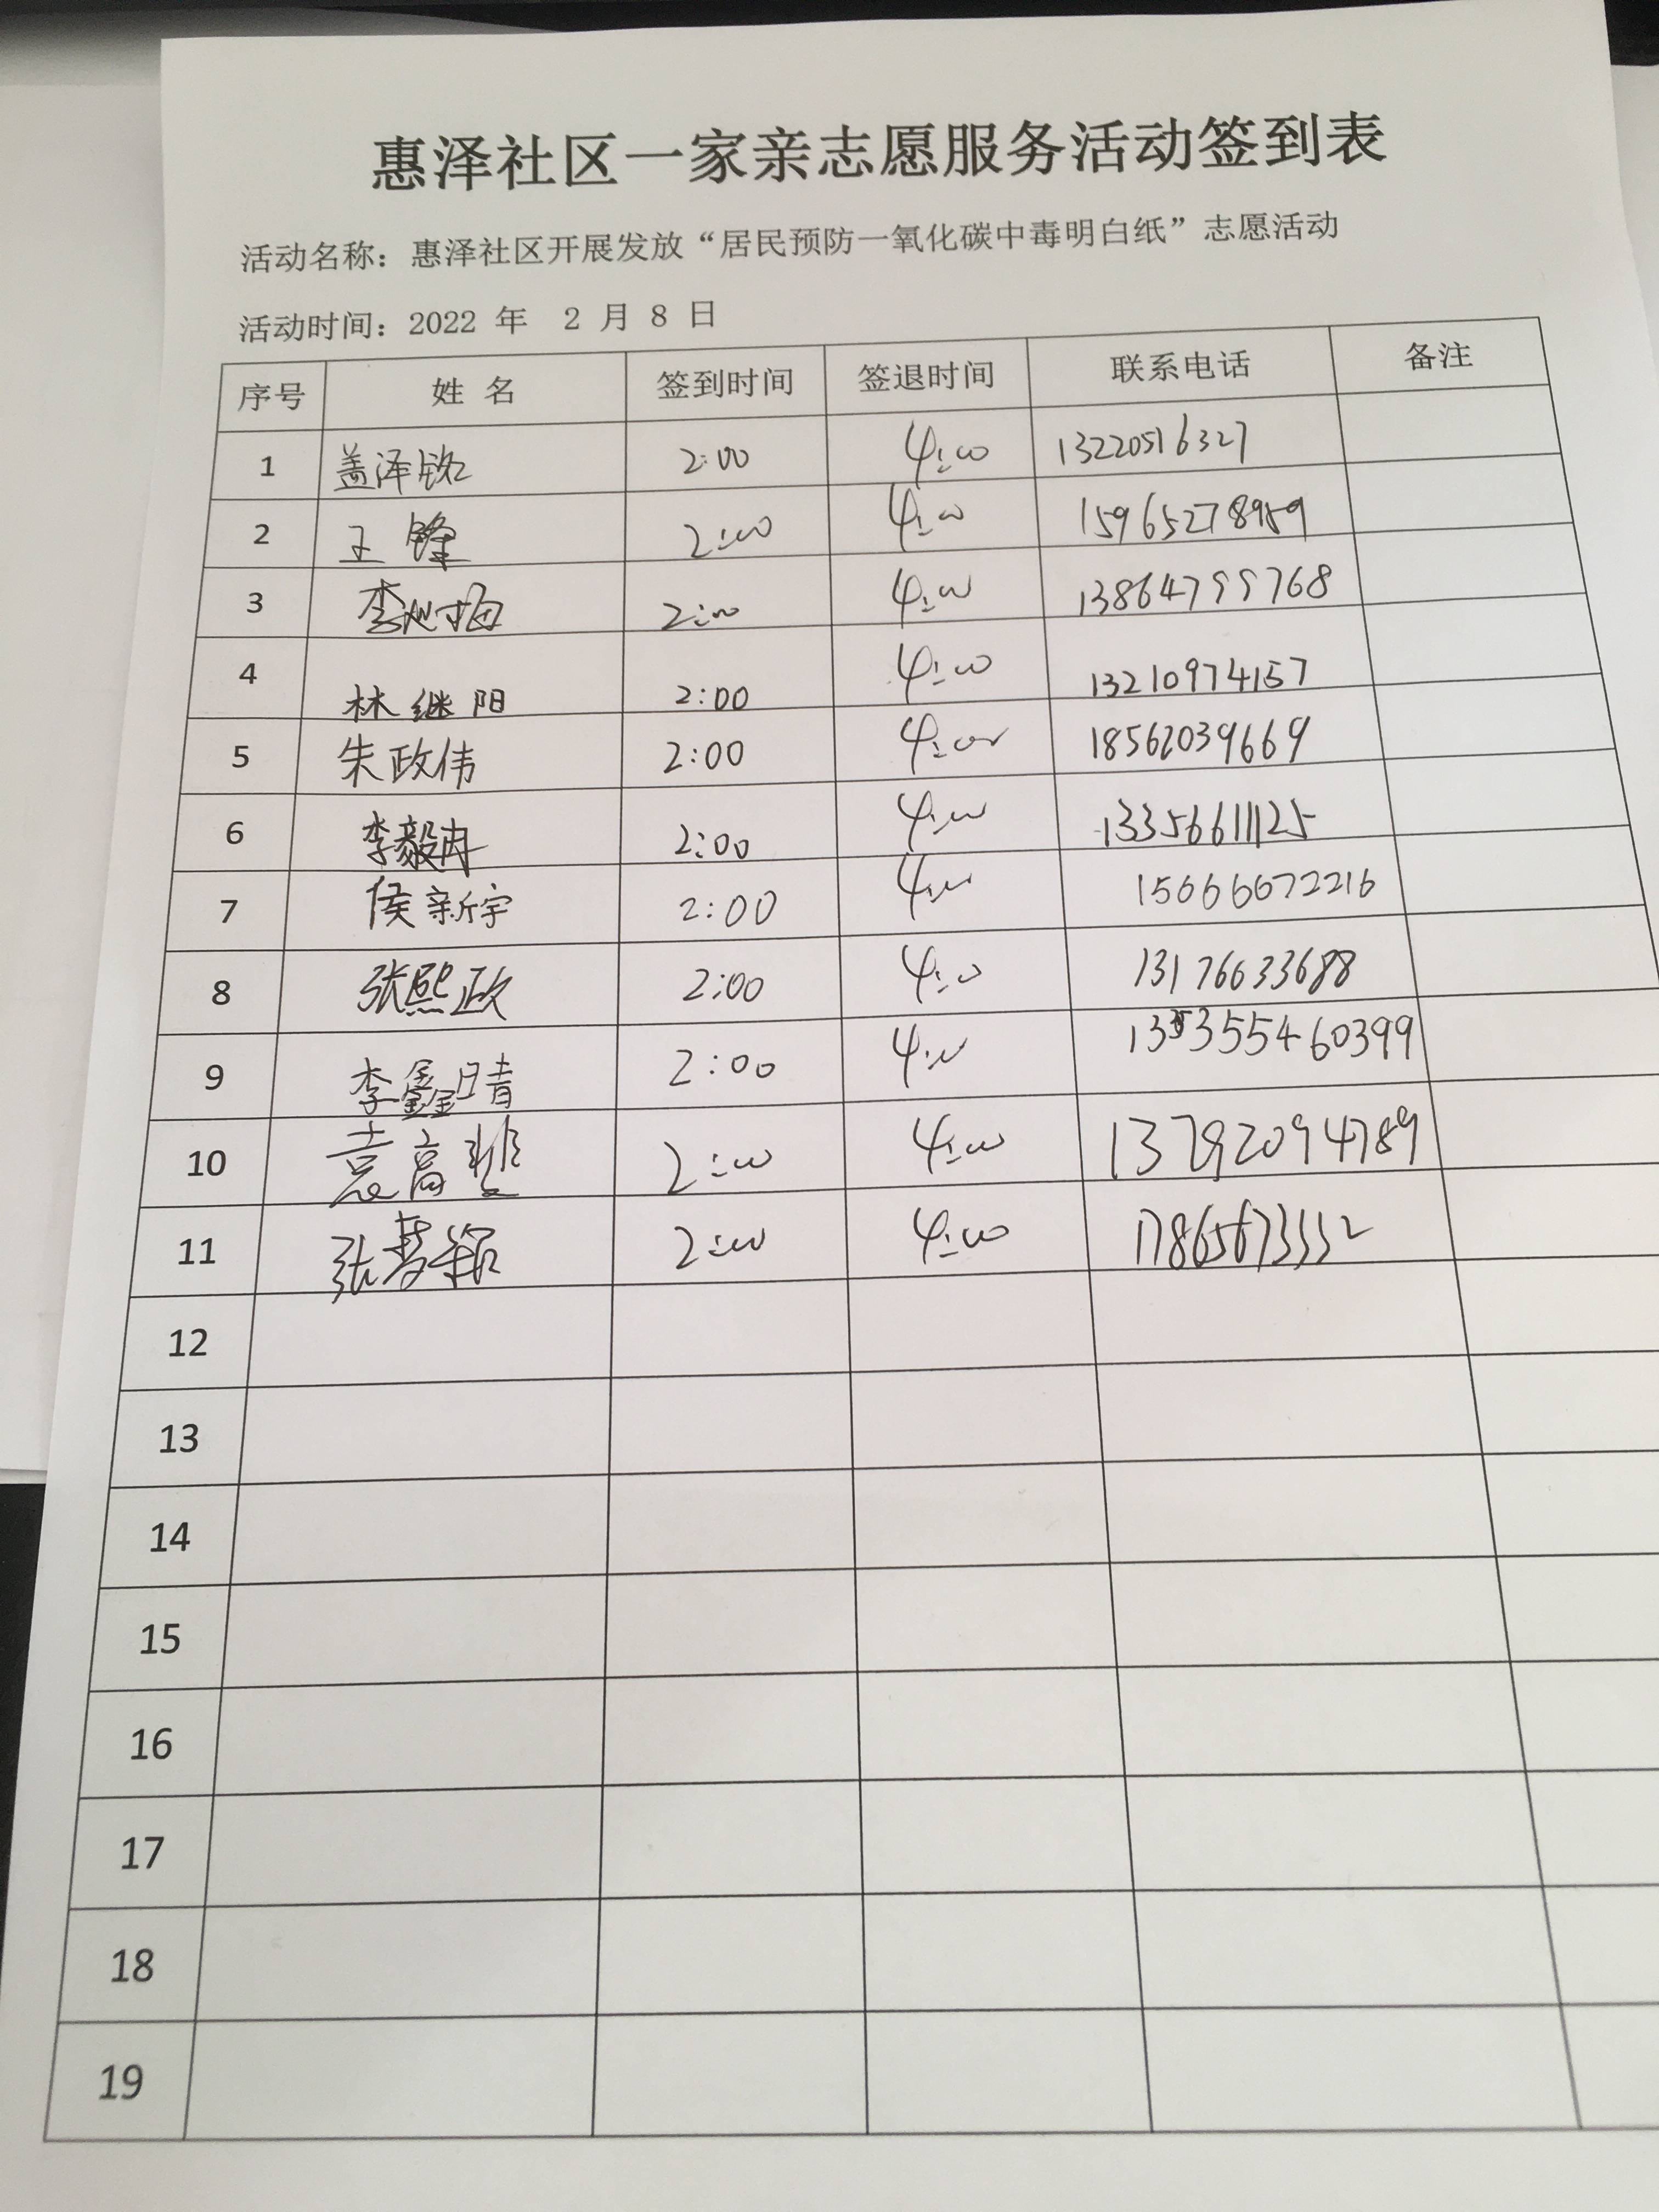 惠泽社区一家亲志愿服务活动签到表
活动名称：惠泽社区开展发放“居民预防一氧化碳中毒明白纸”志愿活动
活动时间：2022 年 2 月 8 日
序号 姓 名 签到时间 签退时间 联系电话 备注
1 盖泽铭 2:00 4:00 13220516327
2 王锋 2:00 4:00 15965278959
3 2:00 4:00 13864799768
4 林继阳 2:00 4:00 13210974157
5 朱政伟 2:00 4:00 18562039669
6 李毅冉 2:00 4:00 13356611125
7 侯新宇 2:00 4:00 15666672216
8 张熙政 2:00 4:00 13176633688
9 李鑫晴 2:00 4:00
10 袁高斐 2:00 4:00 13792094789
11 张梦颖 2:00 4:00 17865673332
12
13
14
15
16
17
18
19